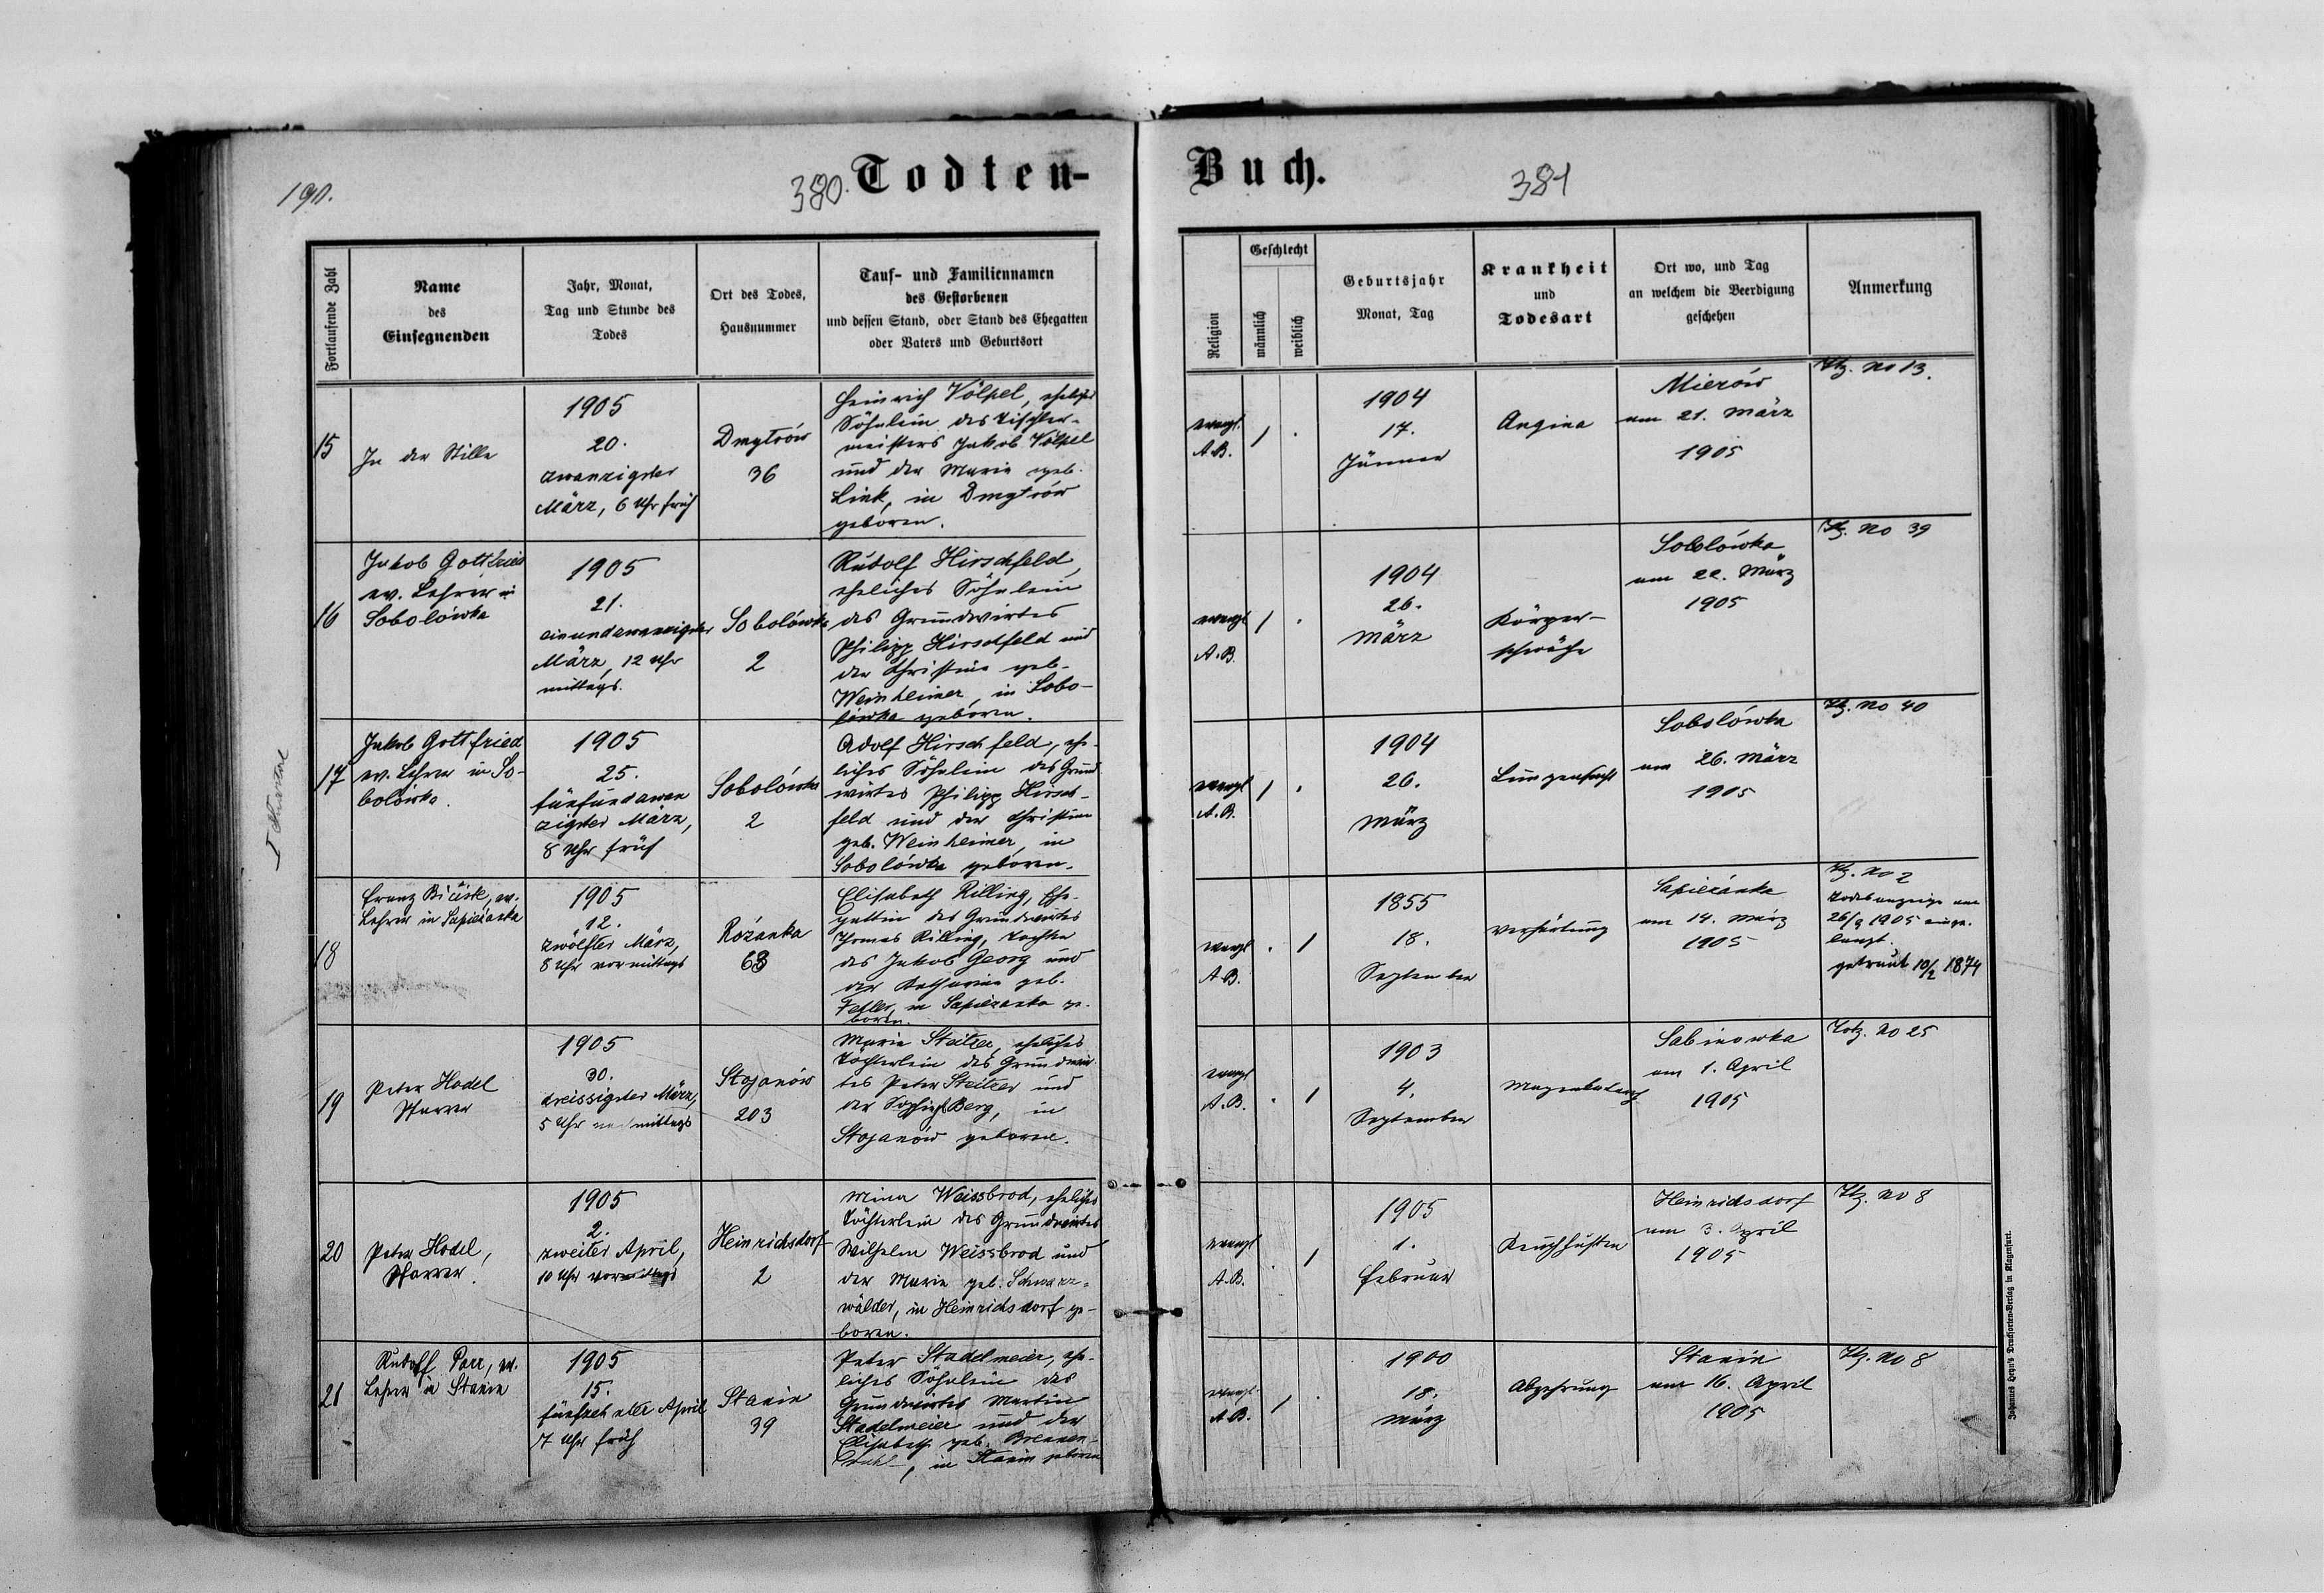 190.
380.
Todten-
Buch.
381
Fortlaufende Zahl
Name
des
Einsegnenden
Jahr, Monat,
Tag und Stunde des
Todes
Ort des Todes,
Hausnummer
Tauf- und Familiennamen
des Gestorbenen
und dessen Stand, oder Stand des Ehegatten
oder Vaters und Geburtsort
Religion
Geschlecht
männlich
weiblich
Geburtsjahr
Monat, Tag
Krankheit
und
Todesart
Ort wo, und Tag
an welchem die Beerdigung
geschehen
Anmerkung
15
In der Stille
1905
20.
zwanzigster
März, 6 Uhr früh
Dmytrów
36
Heinrich Völpel, eheliches
Söhnlein des Tischler-
meisters Jakob Völpel
und der Maria geb.
Link, in Dmytrów
geboren.
evangl.
A.B.
1
.
1904
17.
Jänner
Angina
Mierów
am 21. März
1905
Ztz. No 13.
16
Jakob Gottfried
ev. Lehrer in
Sobolówka
1905
21.
einundzwanzigster
März, 12 Uhr
mittags.
Sobolówka
2
Rudolf Hirschfeld,
eheliches Söhnlein
des Grundwirtes
Philipp Hirschfeld und
der Christine geb.
Weinheimer, in Sobo-
lówka geboren.
evangl
A.B.
1
.
1904
26.
März
Körper-
schwäche
Sobolówka
am 22. März
1905
Ztz. No 39
17
Jakob Gottfried
ev. Lehrer in So-
bolówka.
1905
25.
fünfundzwan
zigster März,
8 Uhr früh
Sobolówka
2
Adolf Hirschfeld, ehe-
liches Söhnlein des Grund
wirtes Philipp Hirsch-
feld und der Christine
geb. Weinheimer, in
Sobolówka geboren.
evangl
A.B.
1
.
1904
26.
März
Lungensucht
Sobolówka
am 26. März
1905
Ztz. No 40
18
Franz ev.
Lehrer in Sapieżanka
1905
12.
zwölfter März,
8 Uhr vormittags
Rożanka
68
Elisabeth Rilling, Ehe-
gattin des Grundwirtes
Thomas Rilling, Tochter
des Jakob Georg und
der Katharina geb.
in Sapieżanka ge-
boren.
evangl
A.B.
.
1
1855
18.
September
Verhärtung
Sapieżanka
am 14. März
1905
Ztz. No 2
Todesanzeige am
1905 einge-
langt.
getraut 10/2 1874
19
Peter Hodel
Pfarrer
1905
30.
dreissigster März,
5 Uhr nachmittags
Stojanów
203
Maria Steitzer, eheliches
Töchterlein des Grundwir-
tes Peter Steitzer und
der Sophie Berg, in
Stojanów geboren.
evangl
A.B.
.
1
1903
4.
September
Magenkatarrh
Sabinowka
am 1. April
1905
Totz. No 25
20
Peter Hodel,
Pfarrer.
1905
2.
zweiter April,
10 Uhr vormittags
Heinrichsdorf
2
Mina Weissbrod, eheliches
Töchterlein des Grundwirtes
Wilhelm Weissbrod und
der Maria geb. Schwarz-
wälder, in Heinrichsdorf ge-
boren.
evangl
A.B.
.
1
1905
1.
Februar
Keuchhusten
Heinrichsdorf
am 3. April
1905
Ztz. No 8
21
Rudolf Parr, ev.
Lehrer in Stanin
1905
15.
fünfzehnter April
7 Uhr früh
Stanin
39
Peter Stadelmeier, ehe-
liches Söhnlein des
Grundwirtes Martin
Stadelmeier und der
Elisabeth geb. Brenen-
stuhl, in Stanin geboren
evangl.
A.B.
1
.
1900
18.
März
Abzehrung
Stanin
am 16. April
1905
Ztz. No 8
Johannes Heyn's Drucksorten-Verlag in Klagenfurt.